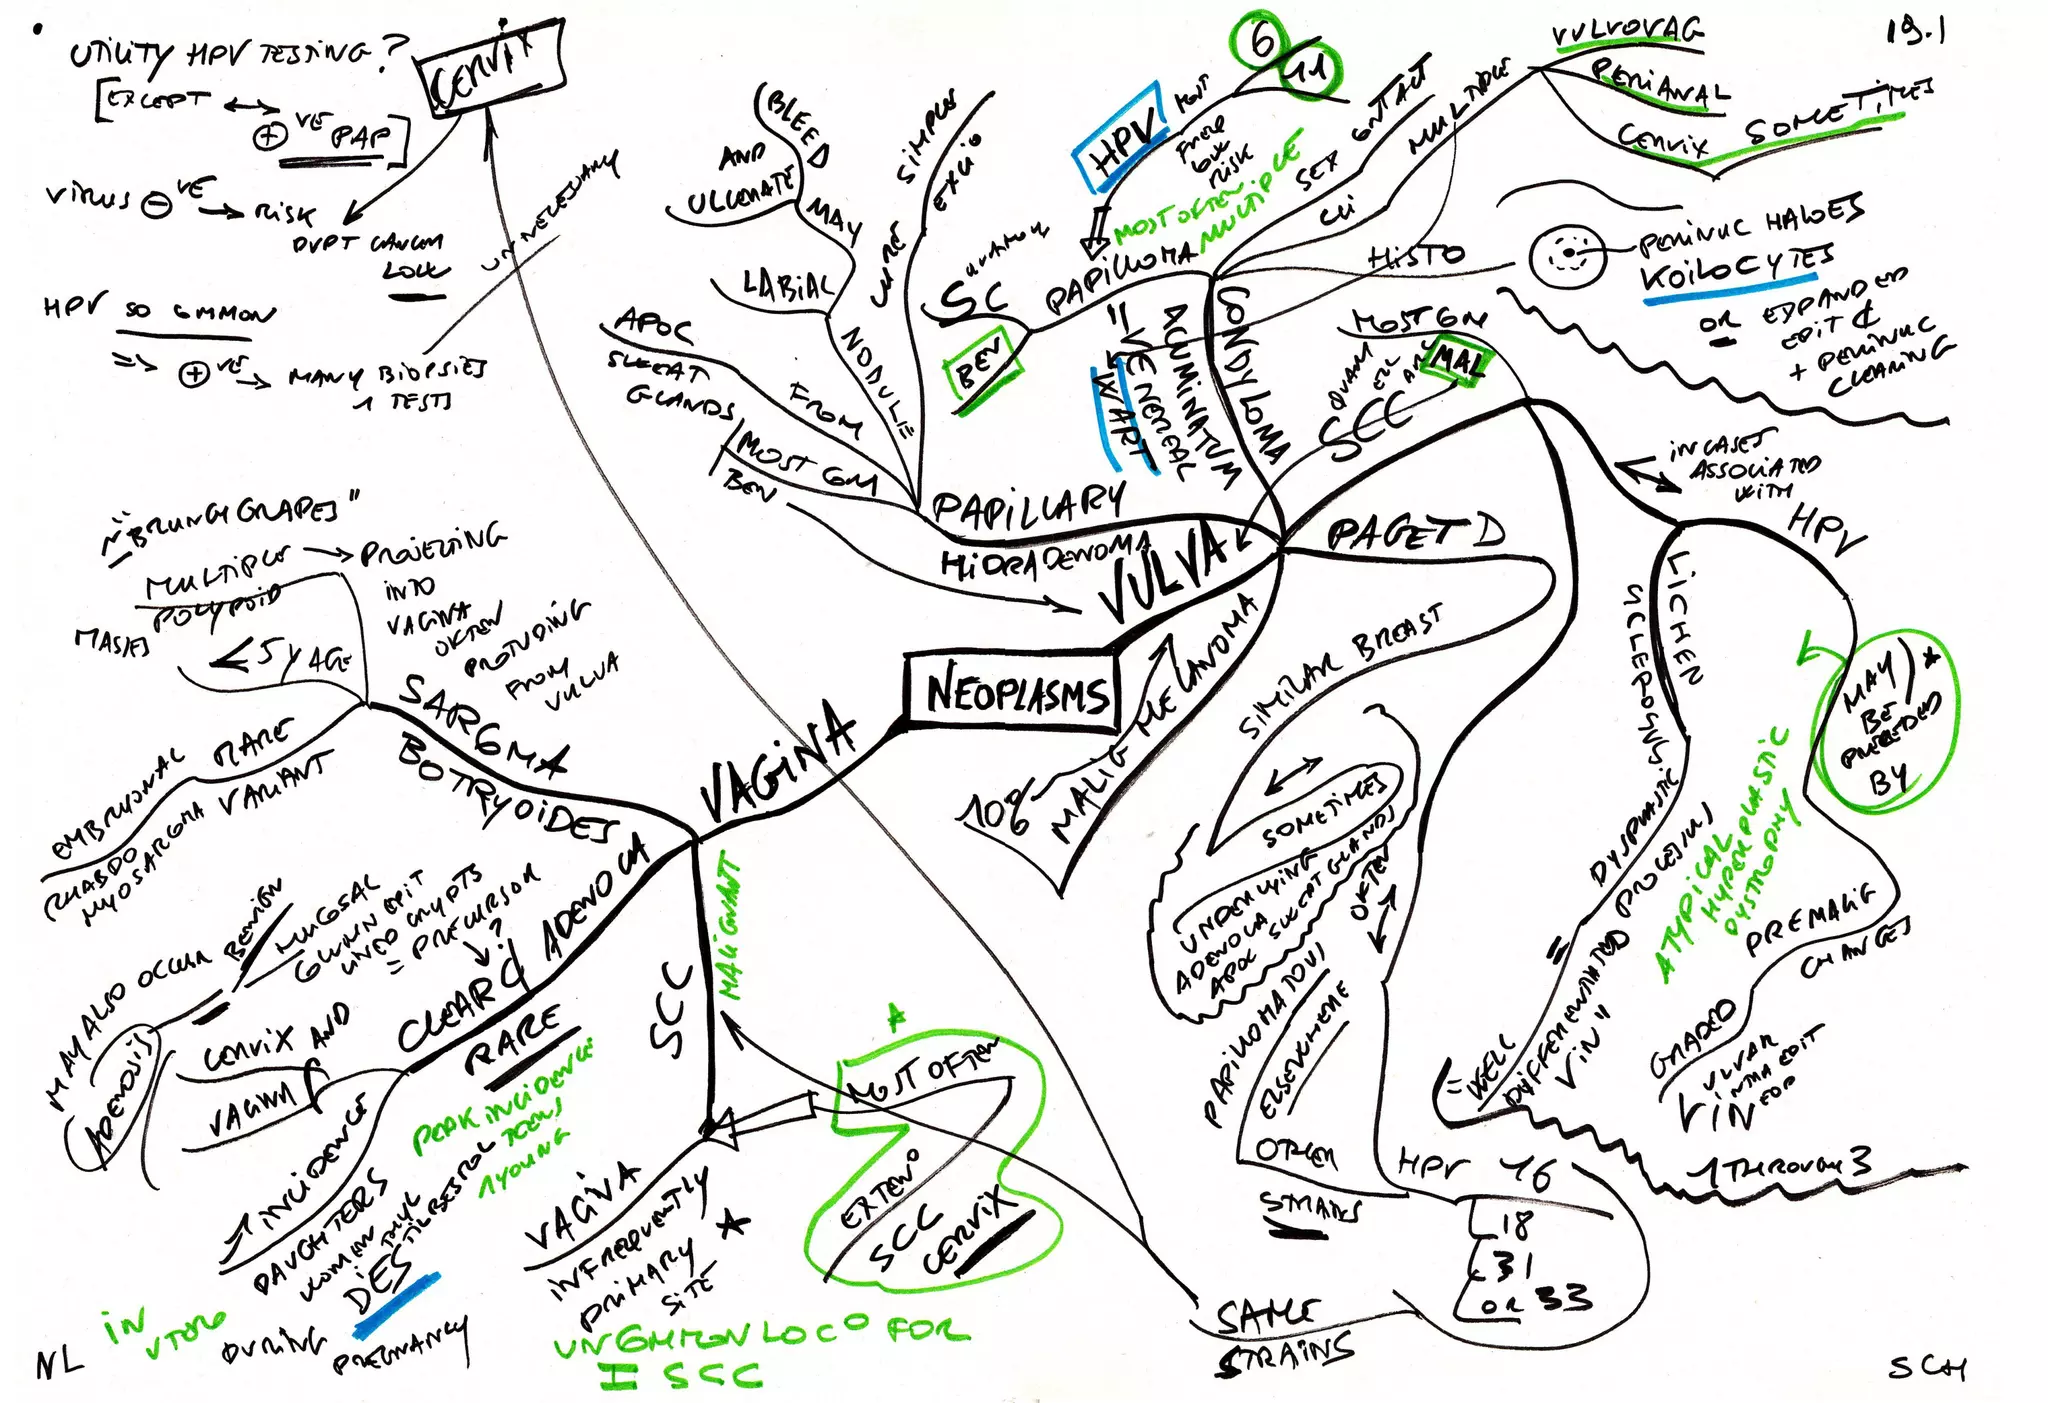 19.1
UTILITY HPV TESTING?
[EXCEPT ↔
⊕VE PAP]
CERVIX
VIRUS ⊖VE → RISK
DVPT CANCER
LOW
HPV SO COMMON
=> ⊕VE → MANY BIOPSIES
TESTS
UNNECESSARY
NEOPLASMS
VULVA
PAPILLARY
HIDRADENOMA
MOST COM
BEN
FROM
APOC
SWEAT
GLANDS
NODULE
LABIAL
MAY
BLEED
AND
ULCERATE
CURE
SIMPLE
EXCIO
CONDYLOMA
ACUMINATUM
= VENEREAL
WART
PAPILLOMA
SQUAMOUS
SC
BEN
MOST OFTEN
MULTIPLE
HPV
MOST
LOW
RISK
6
11
SEX CONTACT
CLI
MULTIPLE
VULVOVAG
PERIANAL
CERVIX SOMETIMES
HISTO
PERINUC HALOES
KOILOCYTES
OR EXPANDED
EPIT ₵
+ PERINUC
CLEARING
MOST COM
MAL
SCC
IN CASES
ASSOCIATED
WITH
HPV
MAY
BE
PRECEDED
BY
*
PREMALIG
CHANGES
GRADED
VULVAR
INTRAEPIT
VIN
1 THROUGH 3
ATYPICAL
HYPERPLASTIC
DYSTROPHY
LICHEN
SCLEROSUS
DYSPLASTIC
PROCESSUS
= WELL
DIFFERENTIATED
VIN"
OFTEN
HPV 16
18
31
OR 33
OTHER
STRAINS
PAPILLOMATOUS
ELSEWHERE
SAME
STRAINS
PAGET D
SIMILAR BREAST
SOMETIMES
UNDERLYING
ADENOCA
APOC SWEAT GLANDS
MALIG MELANOMA
10%
VAGINA
SARCOMA
BOTRYOIDES
<5 Y AGE
MULTIPLE
POLYPOID
MASSES
"BRUNCH GRAPES"
PROJECTING
INTO
VAGINA
OFTEN
PROTUDING
FROM
VULVA
RARE
VARIANT
EMBRYONAL
RHABDO
MYOSARCOMA
CLEAR ₵ ADENOCA
RARE
PEAK INCIDENCE
TEENS
YOUNG
CERVIX AND
VAGINA
MAY ALSO OCCUR
ADENOSIS
BENIGN
MUCOSAL
COLUMN EPIT
LINED CRYPTS
= PRECURSOR
?
↑ INCIDENCE
DAUGHTERS
WOMEN
DES
DIETHYLSTILBESTROL
DURING
PREGNANCY
IN
UTERO
SCC
MALIGNANT
VAGINA
INFREQUENTLY
PRIMARY
SITE
★
UNCOMMON LOC° FOR
I SCC
MOST OFTEN
EXTEN°
SCC
CERVIX
NL
SCH